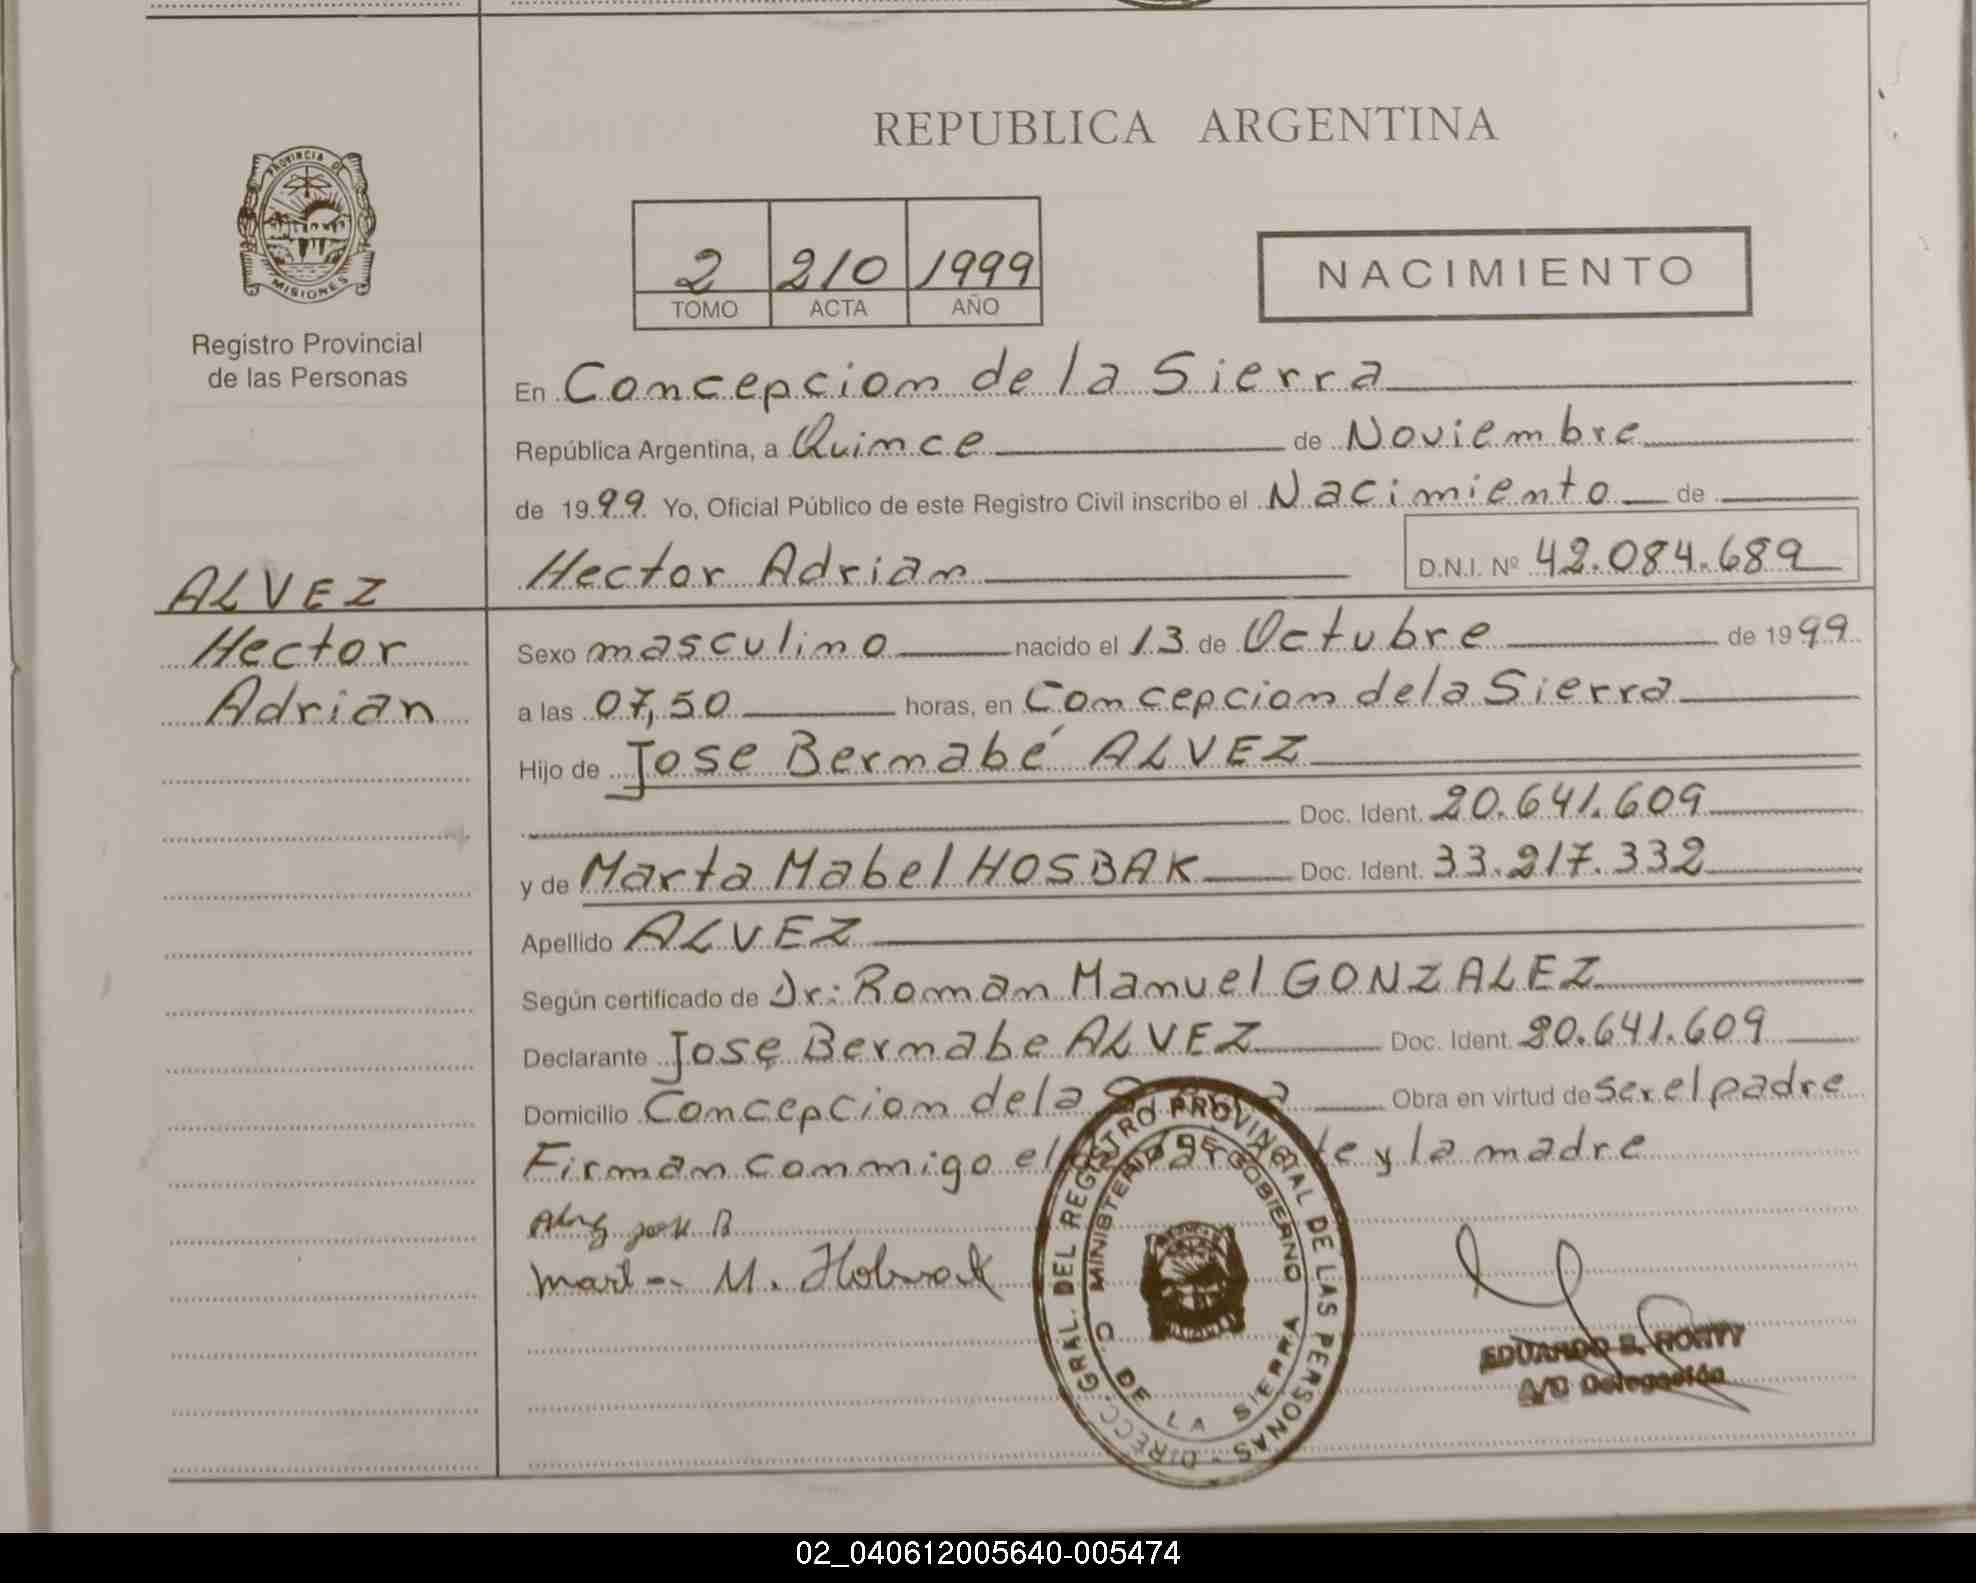 REPUBLICA ARGENTINA
PROVINCIA DE
MISIONES
Registro Provincial
de las Personas
2 210 1999
TOMO ACTA AÑO
NACIMIENTO
En Concepcion de la Sierra
República Argentina, a Quince de Noviembre
de 1999 Yo, Oficial Público de este Registro Civil inscribo el Nacimiento de
Hector Adrian D.N.I. Nº 42.084.689
ALVEZ
Hector
Adrian
Sexo masculino nacido el 13 de Octubre de 1999
a las 07,50 horas, en Concepcion de la Sierra
Hijo de Jose Bernabé ALVEZ
Doc. Ident. 20.641.609
y de Marta Mabel HOSBAK Doc. Ident. 33.217.332
Apellido ALVEZ
Según certificado de Dr: Roman Manuel GONZALEZ
Declarante Jose Bernabe ALVEZ Doc. Ident. 20.641.609
Domicilio Concepcion de la Sierra Obra en virtud de ser el padre
Firman conmigo el declarante y la madre
M.
DIRECC. GRAL. DEL REGISTRO PROVINCIAL DE LAS PERSONAS
MINISTERIO DE GOBIERNO
C. DE LA SIERRA
EDUARDO
A/C Delegación
02_040612005640-005474